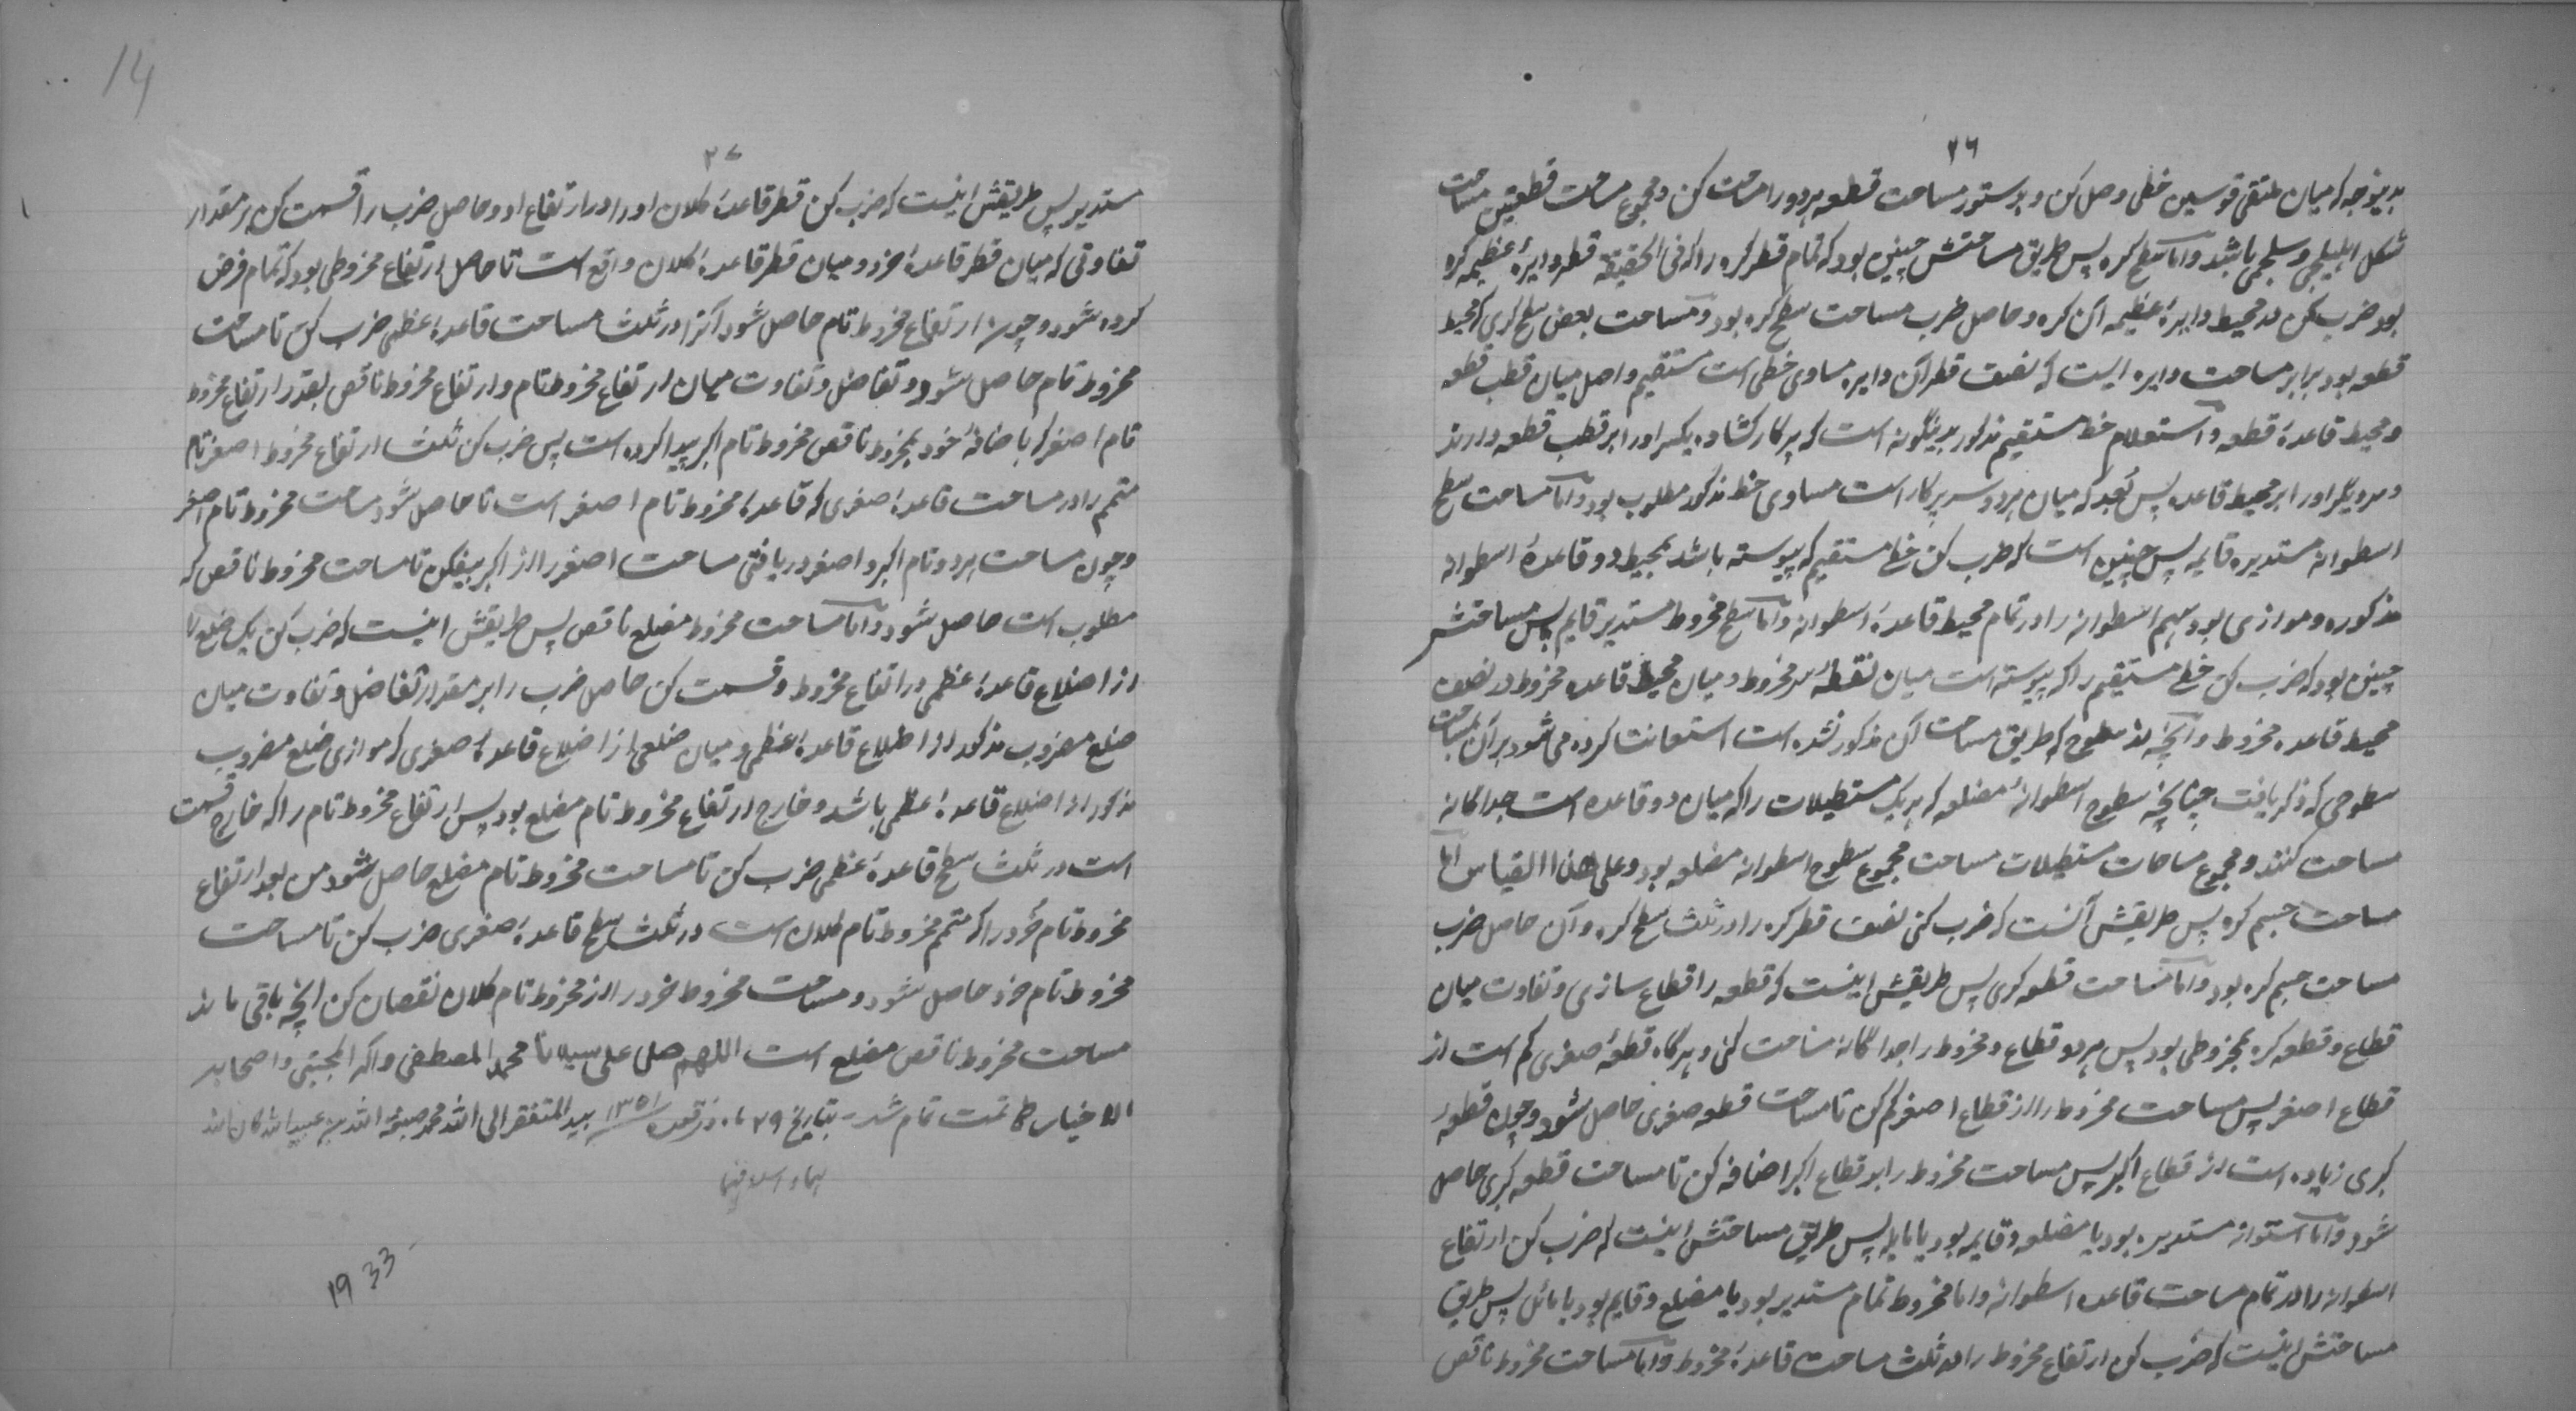 ٢٦
بدینوجه که میان ملتقی قوسین خطی وصل کن و بدستور مساحت قطعه هر دو را مساحت کن و مجموع مساحت قطعتین مساحت
شکل اهلیلجی و شلجمی باشد واما سطح کره پس طریق مساحتش چنین بود که تمام قطر کره را که فی الحقیقة قطر دایرهٔ عظیمه کره
بود ضرب کن در محیط دایرهٔ عظیمه آن کره و حاصل ضرب مساحت سطح کره بود و مساحت بعض سطح کری که محیط
قطعه بود برابر مساحت دایره ایست که نصف قطر آن دایره مساوی خطی است مستقیم واصل میان قطب قطعه
و محیط قاعدهٔ قطعه و استعلام خط مستقیم مذکور بدینگونه است که پرکار کشاده یکسر اورا بر قطب قطعه دارند
و سر دیگر اورا بر محیط قاعده پس بُعد که میان هر دو سر پرکار است مساوی خط مذکور مطلوب بود واما مساحت سطح
اسطوانه مستدیره قایمه پس چنین است که ضرب کن خط مستقیم که پیوسته باشد بمحیط دو قاعدهٔ اسطوانه
مذکوره و موازی بود سهم اسطوانه را در تمام محیط قاعدهٔ اسطوانه واما سطح مخروط مستدیر قایم پس مساحتش
چنین بود که ضرب کن خط مستقیم را که پیوسته است میان نقطهٔ سر مخروط و میان محیط قاعده مخروط در نصف
محیط قاعده مخروط و آنچه از سطوح که طریق مساحت آن مذکور نشده است استعانت کرده می شود بر آن بمساحت
سطوحی که ذکر یافت چنانچه سطوح اسطوانهٔ مضلعه که هر یک مستطیلات را که میان دو قاعده است جداگانه
مساحت کنند و مجموع مساحات مستطیلات مساحت مجموع سطوح اسطوانه مضلعه بود و علی هذا القیاس اما
مساحت جسم کره پس طریقش آنست که ضرب کنی نصف قطر کره را در ثلث سطح کره و آن حاصل ضرب
مساحت جسم کره بود واما مساحت قطعه کری پس طریقش اینست که قطعه را قطاع سازی و تفاوت میان
قطاع و قطعه کره بمخروطی بود پس هر دو قطاع و مخروط را جداگانه مساحت کنی و هرگاه قطعهٔ صغری کم است از
قطاع اصغر پس مساحت مخروط را از قطاع اصغر کم کن تا مساحت قطعه صغری حاصل شود و چون قطعهٔ
کبری زیاده است از قطاع اکبر پس مساحت مخروط را بر قطاع اکبر اضافه کن تا مساحت قطعه کبری حاصل
شود واما استوانه مستدیره بود یا مضلعه و قایمه بود یا مایله پس طریق مساحتش اینست که ضرب کن ارتفاع
اسطوانه را در تمام مساحت قاعده اسطوانه واما مخروط تمام مستدیر بود یا مضلع و قایم بود یا مائل پس طریق
مساحتش اینست که ضرب کن ارتفاع مخروط را در ثلث مساحت قاعدهٔ مخروط واما مساحت مخروط ناقص
14
٢٧
مستدیر پس طریقش اینست که ضرب کن قطر قاعدهٔ کلان اورا در ارتفاع او و حاصل ضرب را قسمت کن بر مقدار
تفاوتی که میان قطر قاعدهٔ خرد و میان قطر قاعدهٔ کلان واقع است تا حاصل ارتفاع مخروطی بود که تمام فرض
کرده شود و چون ارتفاع مخروط تام حاصل شود آنرا در ثلث مساحت قاعدهٔ عظمی ضرب کن تا مساحت
مخروط تام حاصل شود و تفاضل و تفاوت میان ارتفاع مخروط تام و ارتفاع مخروط ناقص بقدر ارتفاع مخروط
تام اصغر که باضافهٔ خود بمخروط ناقص مخروط تام اکبر پیدا کرده است پس ضرب کن ثلث ارتفاع مخروط اصغر تام
متمم را در مساحت قاعدهٔ صغری که قاعدهٔ مخروط تام اصغر است تا حاصل شود مساحت مخروط تام اصغر
و چون مساحت هر دو تام اکبر و اصغر دریافتی مساحت اصغر را از اکبر بیفکن تا مساحت مخروط ناقص که
مطلوب است حاصل شود واما مساحت مخروط مضلع ناقص پس طریقش اینست که ضرب کن یک ضلع را
از اضلاع قاعدهٔ عظمی در ارتفاع مخروط و قسمت کن حاصل ضرب را بر مقدار تفاضل و تفاوت میان
ضلع مضروب مذکور از اضلاع قاعدهٔ عظمی و میان ضلعی از اضلاع قاعدهٔ صغری که موازی ضلع مضروب
مذکور از اضلاع قاعدهٔ عظمی باشد و خارج ارتفاع مخروط تام مضلع بود پس ارتفاع مخروط تام را که خارج قسمت
است در ثلث سطح قاعدهٔ عظمی ضرب کن تا مساحت مخروط تام مضلع حاصل شود من بعد ارتفاع
مخروط تام خُرد را که متمم مخروط تام کلان است در ثلث سطح قاعدهٔ صغری ضرب کن تا مساحت
مخروط تام خرد حاصل شود و مساحت مخروط خرد را از مخروط تام کلان نقصان کن آنچه باقی ماند
مساحت مخروط ناقص مضلع است اللهم صلی علی سیدنا محمد المصطفی و آله المجتبی و اصحابه
الاخیار تمت تمام شد - بتاریخ ٢٩ ذیقعده ١٣٥١ بید المفتقر الی الله محمد صبغة الله بن عبید الله کان الله
1933